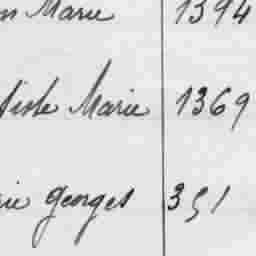 n Marie 1394
tiste Marie 1369
rie georges 351